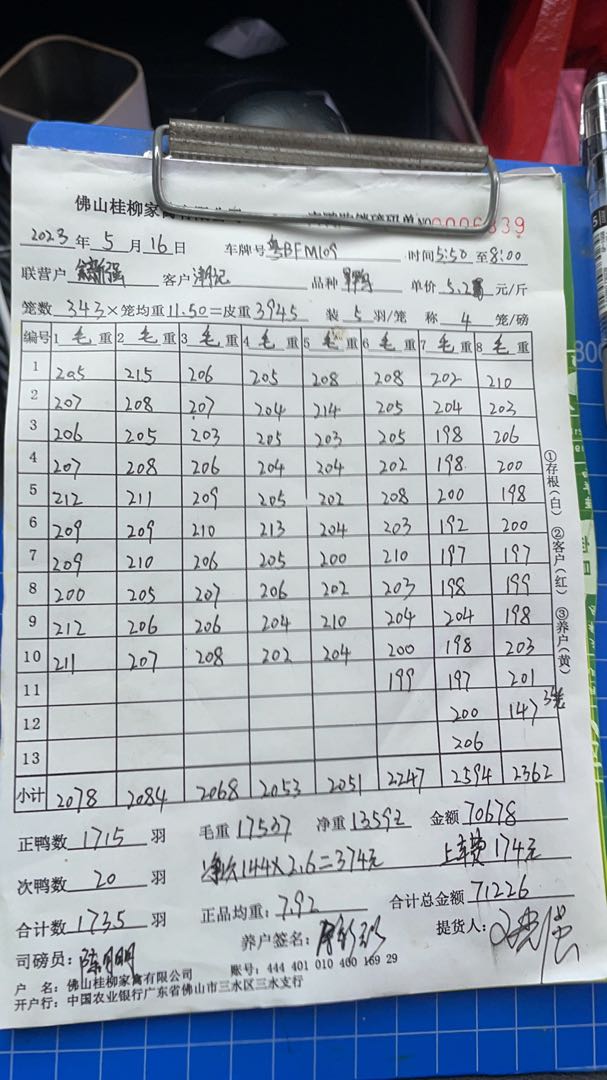 佛山桂柳家禽有限公司 NO 0006839
2023 年 5 月 16 日 车牌号 粤BFM109 时间 5:50 至 8:00
联营户 客户 潮记 品种 单价 5.2 元/斤
笼数 343 × 笼均重 11.50 = 皮重 3945 装 5 羽/笼 称 4 笼/磅
编号 1 毛 重 2 毛 重 3 毛 重 4 毛 重 5 毛 重 6 毛 重 7 毛 重 8 毛 重
1 205 215 206 205 208 208 202 210
2 207 208 207 204 214 205 204 203
3 206 205 203 205 203 205 198 206
4 207 208 206 204 204 202 198 200
5 212 211 209 205 202 208 200 198
6 209 209 210 213 204 203 192 200
7 209 210 206 205 200 210 197 197
8 200 205 207 206 202 203 198 199
9 212 206 206 204 210 204 204 198
10 211 207 208 202 204 200 198 203
11 199 197 201
12 200 147 3笼
13 206
小计 2078 2084 2068 2053 2051 2247 2594 2362
①存根(白) ②客户(红) ③养户(黄)
正鸭数 1715 羽 毛重 17537 净重 13592 金额 70678
次鸭数 20 羽 144×2.6=374元 上车费 174元
合计数 1735 羽 正品均重: 7.92 合计总金额 71226
司磅员: 陈明明 养户签名: 提货人:
户 名: 佛山桂柳家禽有限公司 账号: 444 401 010 400 169 29
开户行: 中国农业银行广东省佛山市三水区三水支行